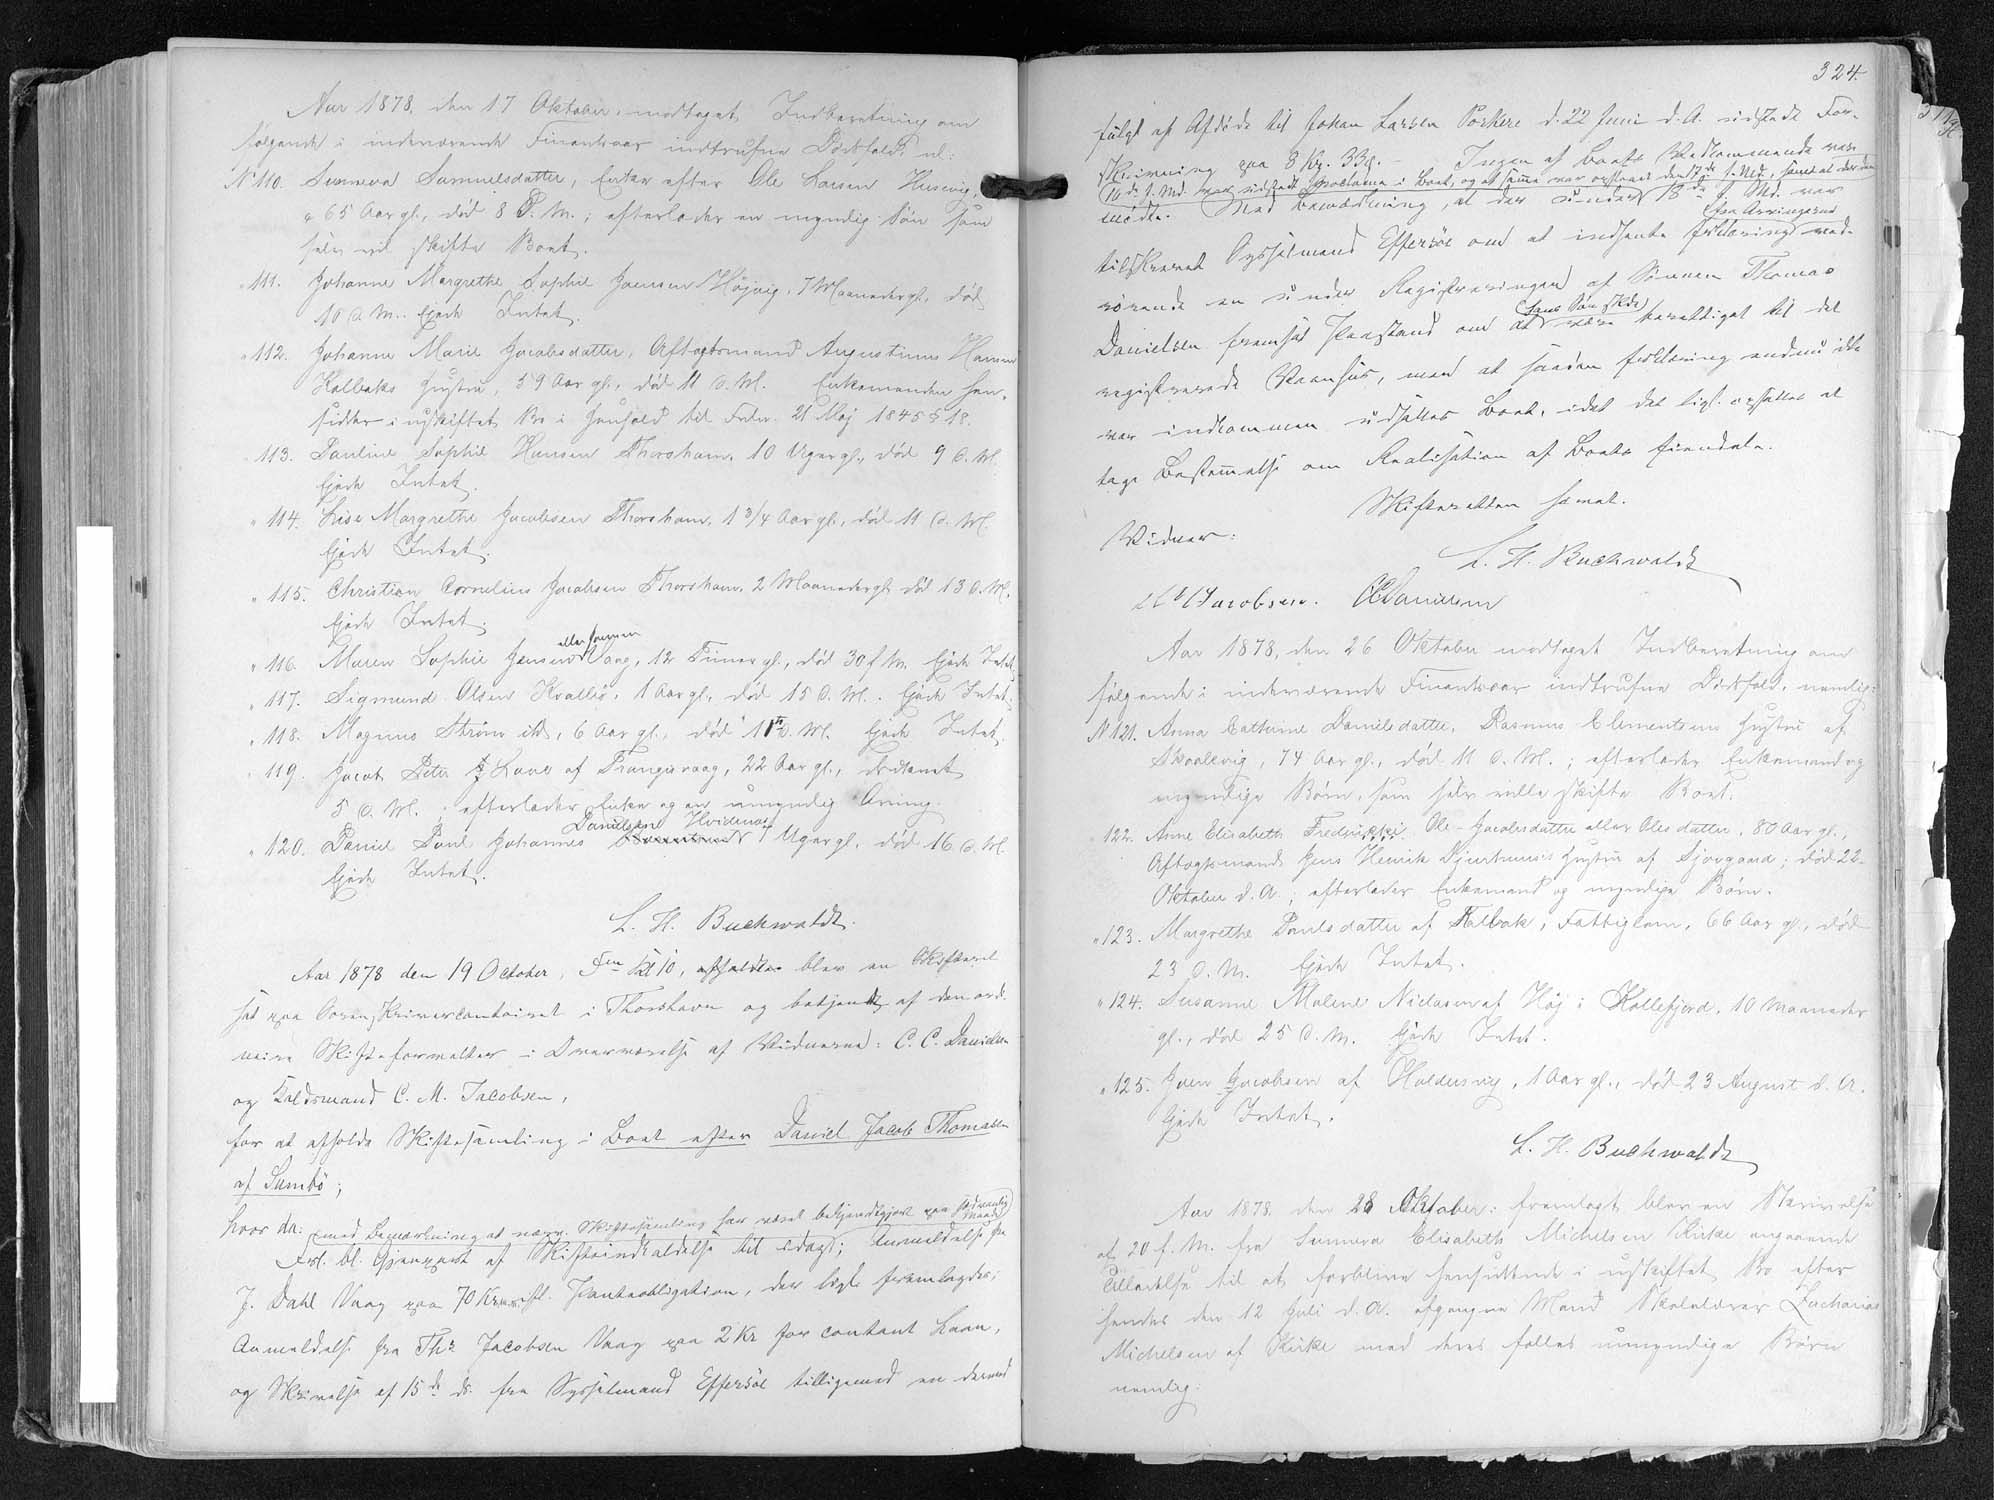 Aar 1878, den 17 Oktober, modtaget Indberetning om
følgende i indeværende Finantsaar indtrufne Dødsfald, nl:
N 110. Sunneva Samuelsdatter, Enke efter Ole Larsen Husevig,
65 Aar gl., død 8 d. M.; efterlader en myndig Søn som
selv vil skifte Boet.
" 111. Johanne Margrethe Sophie Joensen Højvig, 7 Maaneder gl., død
10 d. M. Ejede Intet.
" 112. Johanne Marie Jacobsdatter, Aftægtsmand Augustinus Hansen
Kolbaks Hustru, 59 Aar gl., død 11 d. M. Enkemanden hen-
sidder i uskiftet Bo i Henhold til Frdn. 21 Maj 1845 § 18.
" 113. Pauline Sophie Hansen Thorshavn, 10 Uger gl., død 9 d. M.
Ejede Intet.
" 114. Lise Margrethe Jacobsen Thorshavn, 1 3/4 Aar gl., død 11 d. M.
Ejede Intet.
" 115. Christian Cornelius Jacobsen Thorshavn, 2 Maaneder gl. død 13 d. M.
Ejede Intet.
eller Joensen
" 116. Maren Sophie Jensen Vaag, 12 Timer gl., død 30 f. M. Ejede Intet
" 117. Sigmund Olsen Kvalbø, 1 Aar gl., død 15 d. M. Ejede Intet.
" 118. Magnus Strøm ibd, 6 Aar gl., død 11 d. M. Ejede Intet.
" 119. Jacob Peter Lave af Frangisvaag, 22 Aar gl., druknet
5 d. M.; efterlader Enke og en umyndig Arving.
Danielsen Hvidenæs
" 120. Daniel Poul Johannes 7 Uger gl., død 16 d. M.
Ejede Intet.
L. H. Buchwaldt.
Aar 1878 den 19 October, Fm Kl 10, blev en Skifteret
sat paa Sorenskrivercontoiret i Thorshavn og betjent af den ordi-
naire Skifteforvalter i Overværelse af Vidnerne: C. C. Danielsen
og Kaldsmand C. M. Jacobsen,
for at afholde Skiftesamling i Boet efter Daniel Jacob Thomassen
af Sumbø;
hvor da: med Bemærkning at nærv. Skiftesamling har været bekjendtgjort paa sædvanlig Maade
Frl. bl. Gjenpart af Skifteindkaldelse til idag; Anmeldelse fra
J. Dahl Vaag paa 70 Kr Pantobligation, der lagde fremlagdes;
Anmeldelse fra Ths Jacobsen Vaag paa 2 Kr for contant Laan,
og Skrivelse af 15 ds. fra Sysselmand Effersøe tilligemed en dermed
324.
fulgt af Afdøde til Johan Larsen Porkere d. 22 Juni d. A. udstedt For-
skrivning paa 8 Kr. 33 Ø. — Ingen af Boets Vedkommende var
16 d. f. Md. var udstedt Proclama i Boet, og at samme var
mødt. Med Bemærkning, at der under 18 f. Md. var
fra Arvingerne
tilskrevet Sysselmand Effersøe om at indhente Erklæring ved-
rørende en under Registreringen af Sønnen Thomas
Danielsen fremsat Paastand om at være berettiget til det
registrerede Vaanhus, men at saadan Erklæring endnu ikke
var indkommen udsattes Boet, idet det ligl. opsattes at
tage Bestemmelse om Realisation af Boets Eiendele.
Skifteretten hævet.
Vidner:
L. H. Buchwaldt
C M Jacobsen. C C Danielsen
Aar 1878, den 26 Oktober modtaget Indberetning om
følgende i indeværende Finantsaar indtrufne Dødsfald, nemlig:
N 121. Anna Cathrine Danielsdatter, Rasmus Clementsens Hustru af
Skaalevig, 74 Aar gl., død 11 d. M.; efterlader Enkemand og
myndige Børn, som selv ville skifte Boet.
" 122. Anne Elisabeth Fredrikke Ole-Jacobsdatter eller Olesdatter, 80 Aar gl.,
Aftægtsmand Jens Henrik Djurhuus's Hustru af Sjovgaard; død 22
Oktober d. A.; efterlader Enkemand og myndige Børn.
" 123. Margrethe Poulsdatter af Kolbak, Fattiglem, 66 Aar gl., død
23 d. M. Ejede Intet.
" 124. Susanne Malene Niclasen af Høj i Kollefjord, 10 Maaneder
gl., død 25 d. M. Ejede Intet.
" 125. Joen Jacobsen af Haldersvig, 1 Aar gl., død 23 August d. A.
Ejede Intet.
L. H. Buchwaldt
Aar 1878, den 28 Oktober: fremlagt blev en Skrivelse
af 20 f. M. fra Sunneva Elisabeth Michelsen Kirke angaaende
Tilladelse til at forblive hensiddende i uskiftet Bo efter
hendes den 12 Juli d. A. afgangne Mand Skolelærer Zacharias
Michelsen af Kirke med deres fælles umyndige Børn
nemlig: